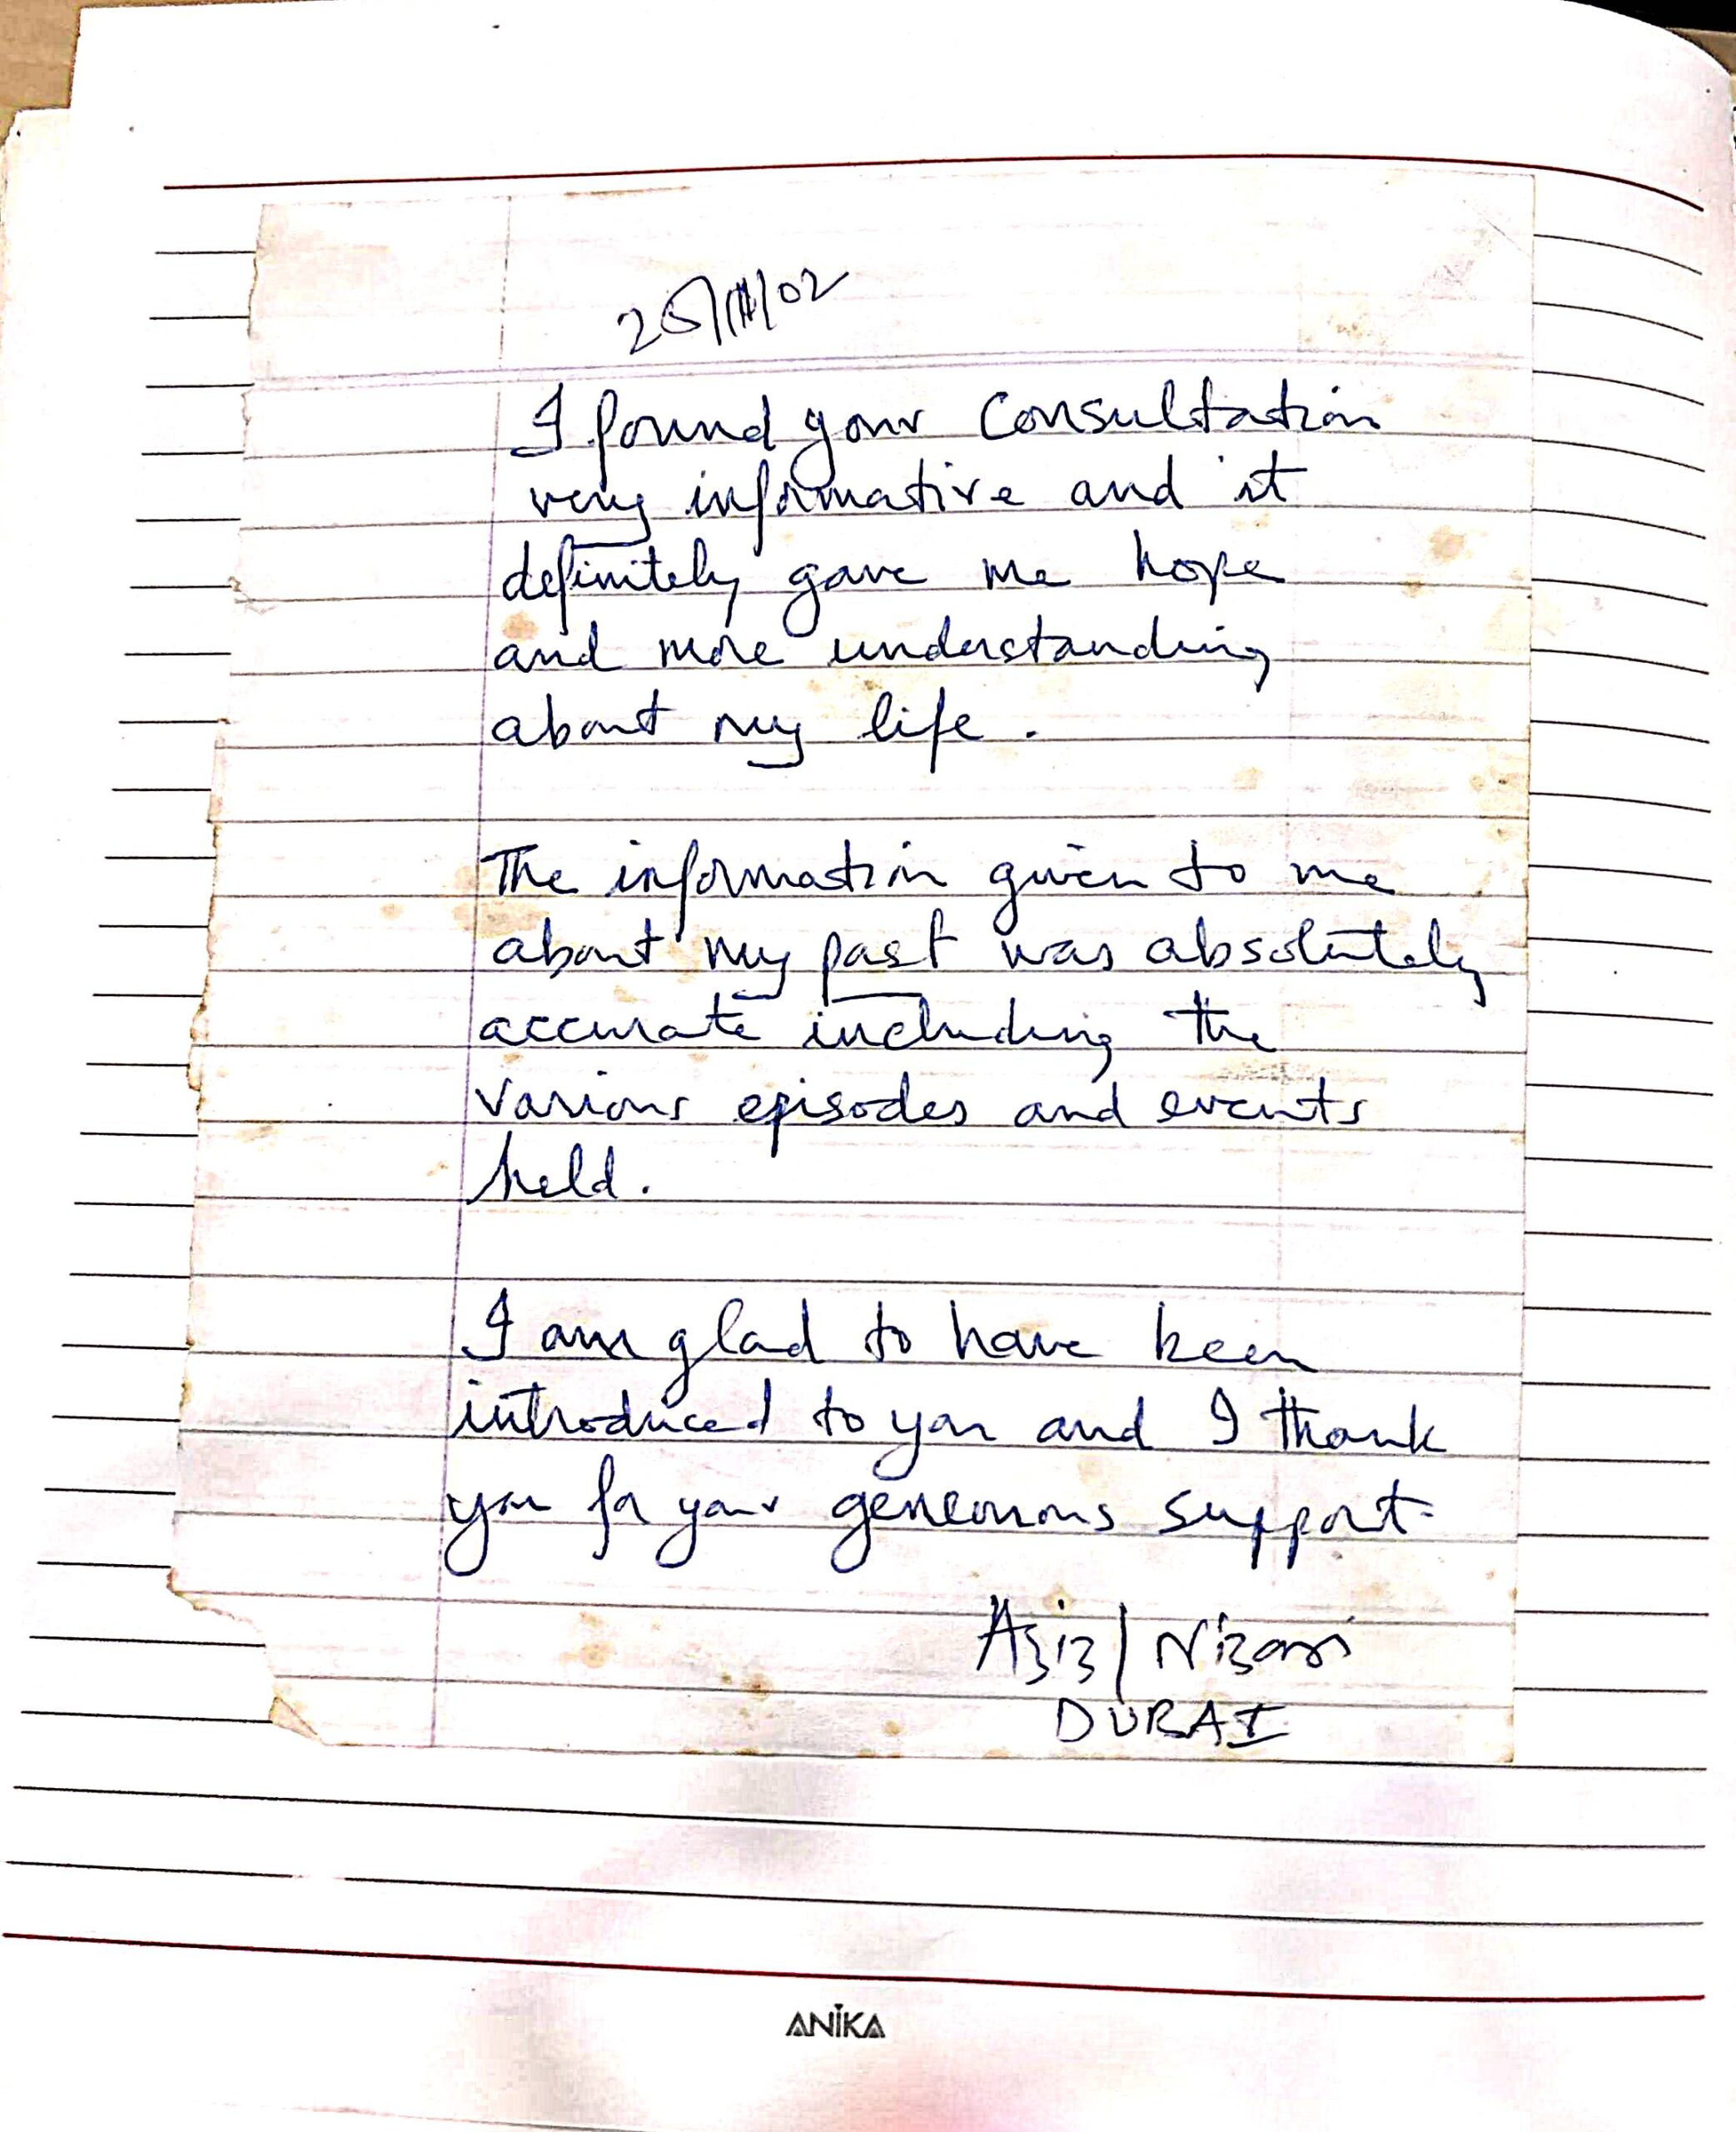 I found your Consultation
very informative and it
definitely gave me hope
and more understanding
about my life.
The information given to me
about my past was absolutely
accurate including the
various episodes and events
held.
I am glad to have been
introduced to you and I thank
you for your generous support.
Aziz
DUBAI
ANIKA